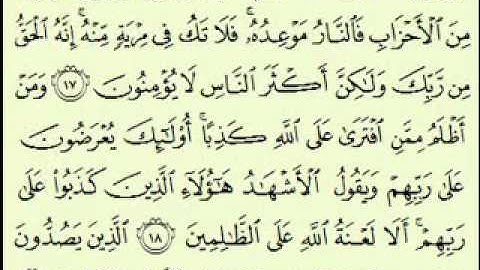 مِنَ ٱلْأَحْزَابِ فَٱلنَّارُ مَوْعِدُهُۥ ۚ فَلَا تَكُ فِى مِرْيَةٍ مِّنْهُ ۚ إِنَّهُ ٱلْحَقُّ
مِن رَّبِّكَ وَلَـٰكِنَّ أَكْثَرَ ٱلنَّاسِ لَا يُؤْمِنُونَ ١٧ وَمَنْ
أَظْلَمُ مِمَّنِ ٱفْتَرَىٰ عَلَى ٱللَّهِ كَذِبًا ۚ أُو۟لَـٰٓئِكَ يُعْرَضُونَ
عَلَىٰ رَبِّهِمْ وَيَقُولُ ٱلْأَشْهَـٰدُ هَـٰٓؤُلَآءِ ٱلَّذِينَ كَذَبُوا۟ عَلَىٰ
رَبِّهِمْ ۚ أَلَا لَعْنَةُ ٱللَّهِ عَلَى ٱلظَّـٰلِمِينَ ١٨ ٱلَّذِينَ يَصُدُّونَ